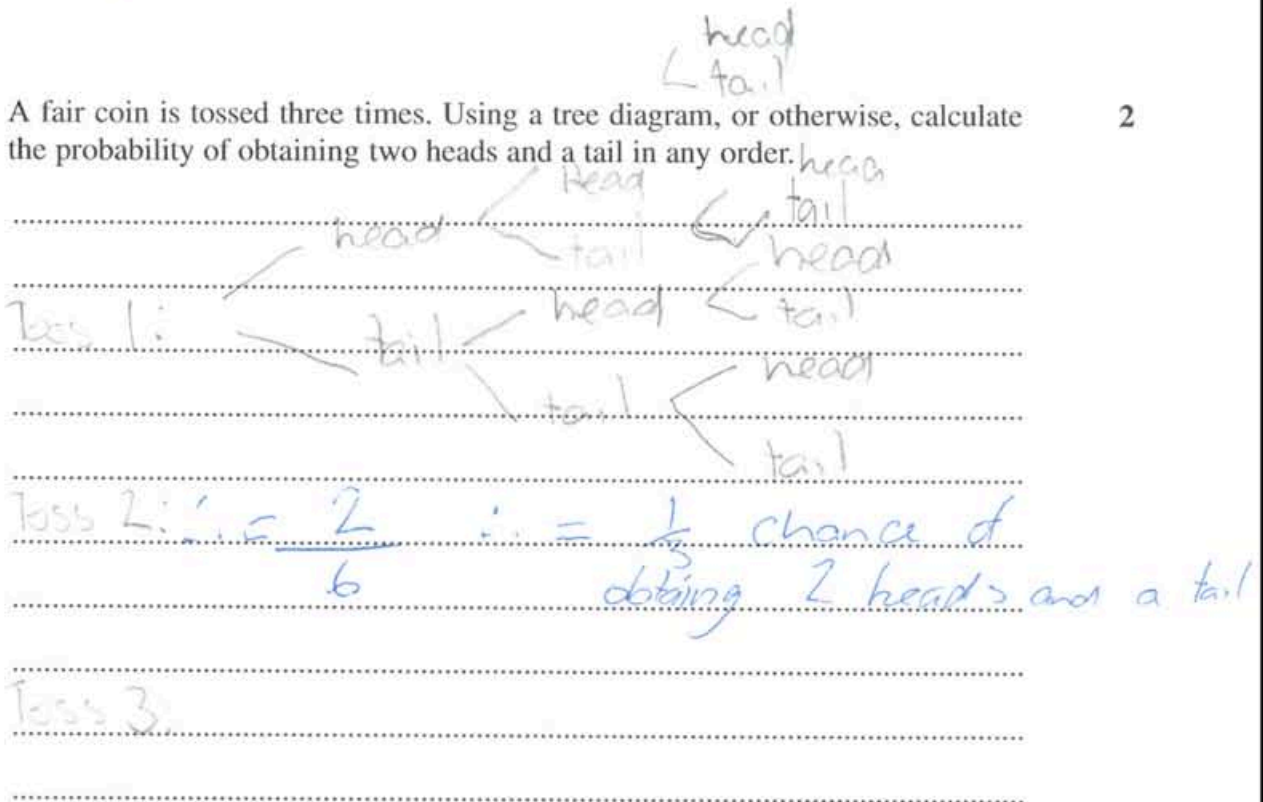 head
tail
A fair coin is tossed three times. Using a tree diagram, or otherwise, calculate 2
the probability of obtaining two heads and a tail in any order.
head
Head
tail
head
tail
head
head
tail
Toss 1:
tail
head
tail
tail
Toss 2: ∴ = 2/6 ∴ = 1/3 chance of
obtaing 2 heads and a tail
Toss 3.